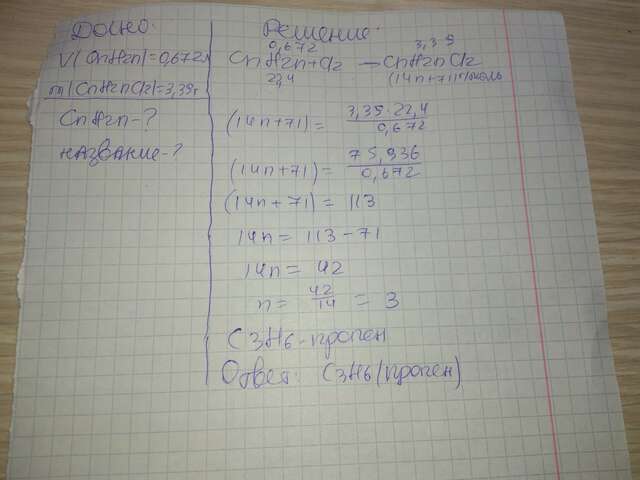 Дано:
V(CnH2n)=0,672л
m(CnH2nCl2)=3,39г
CnH2n-?
название-?
Решение:
0,672 3,39
CnH2n+Cl2 → CnH2nCl2
22,4 (14n+71)г/моль
(14n+71) = 3,39·22,4 / 0,672
(14n+71) = 75,936 / 0,672
(14n+71) = 113
14n = 113-71
14n = 42
n = 42/14 = 3
C3H6-пропен
Ответ: C3H6(пропен)